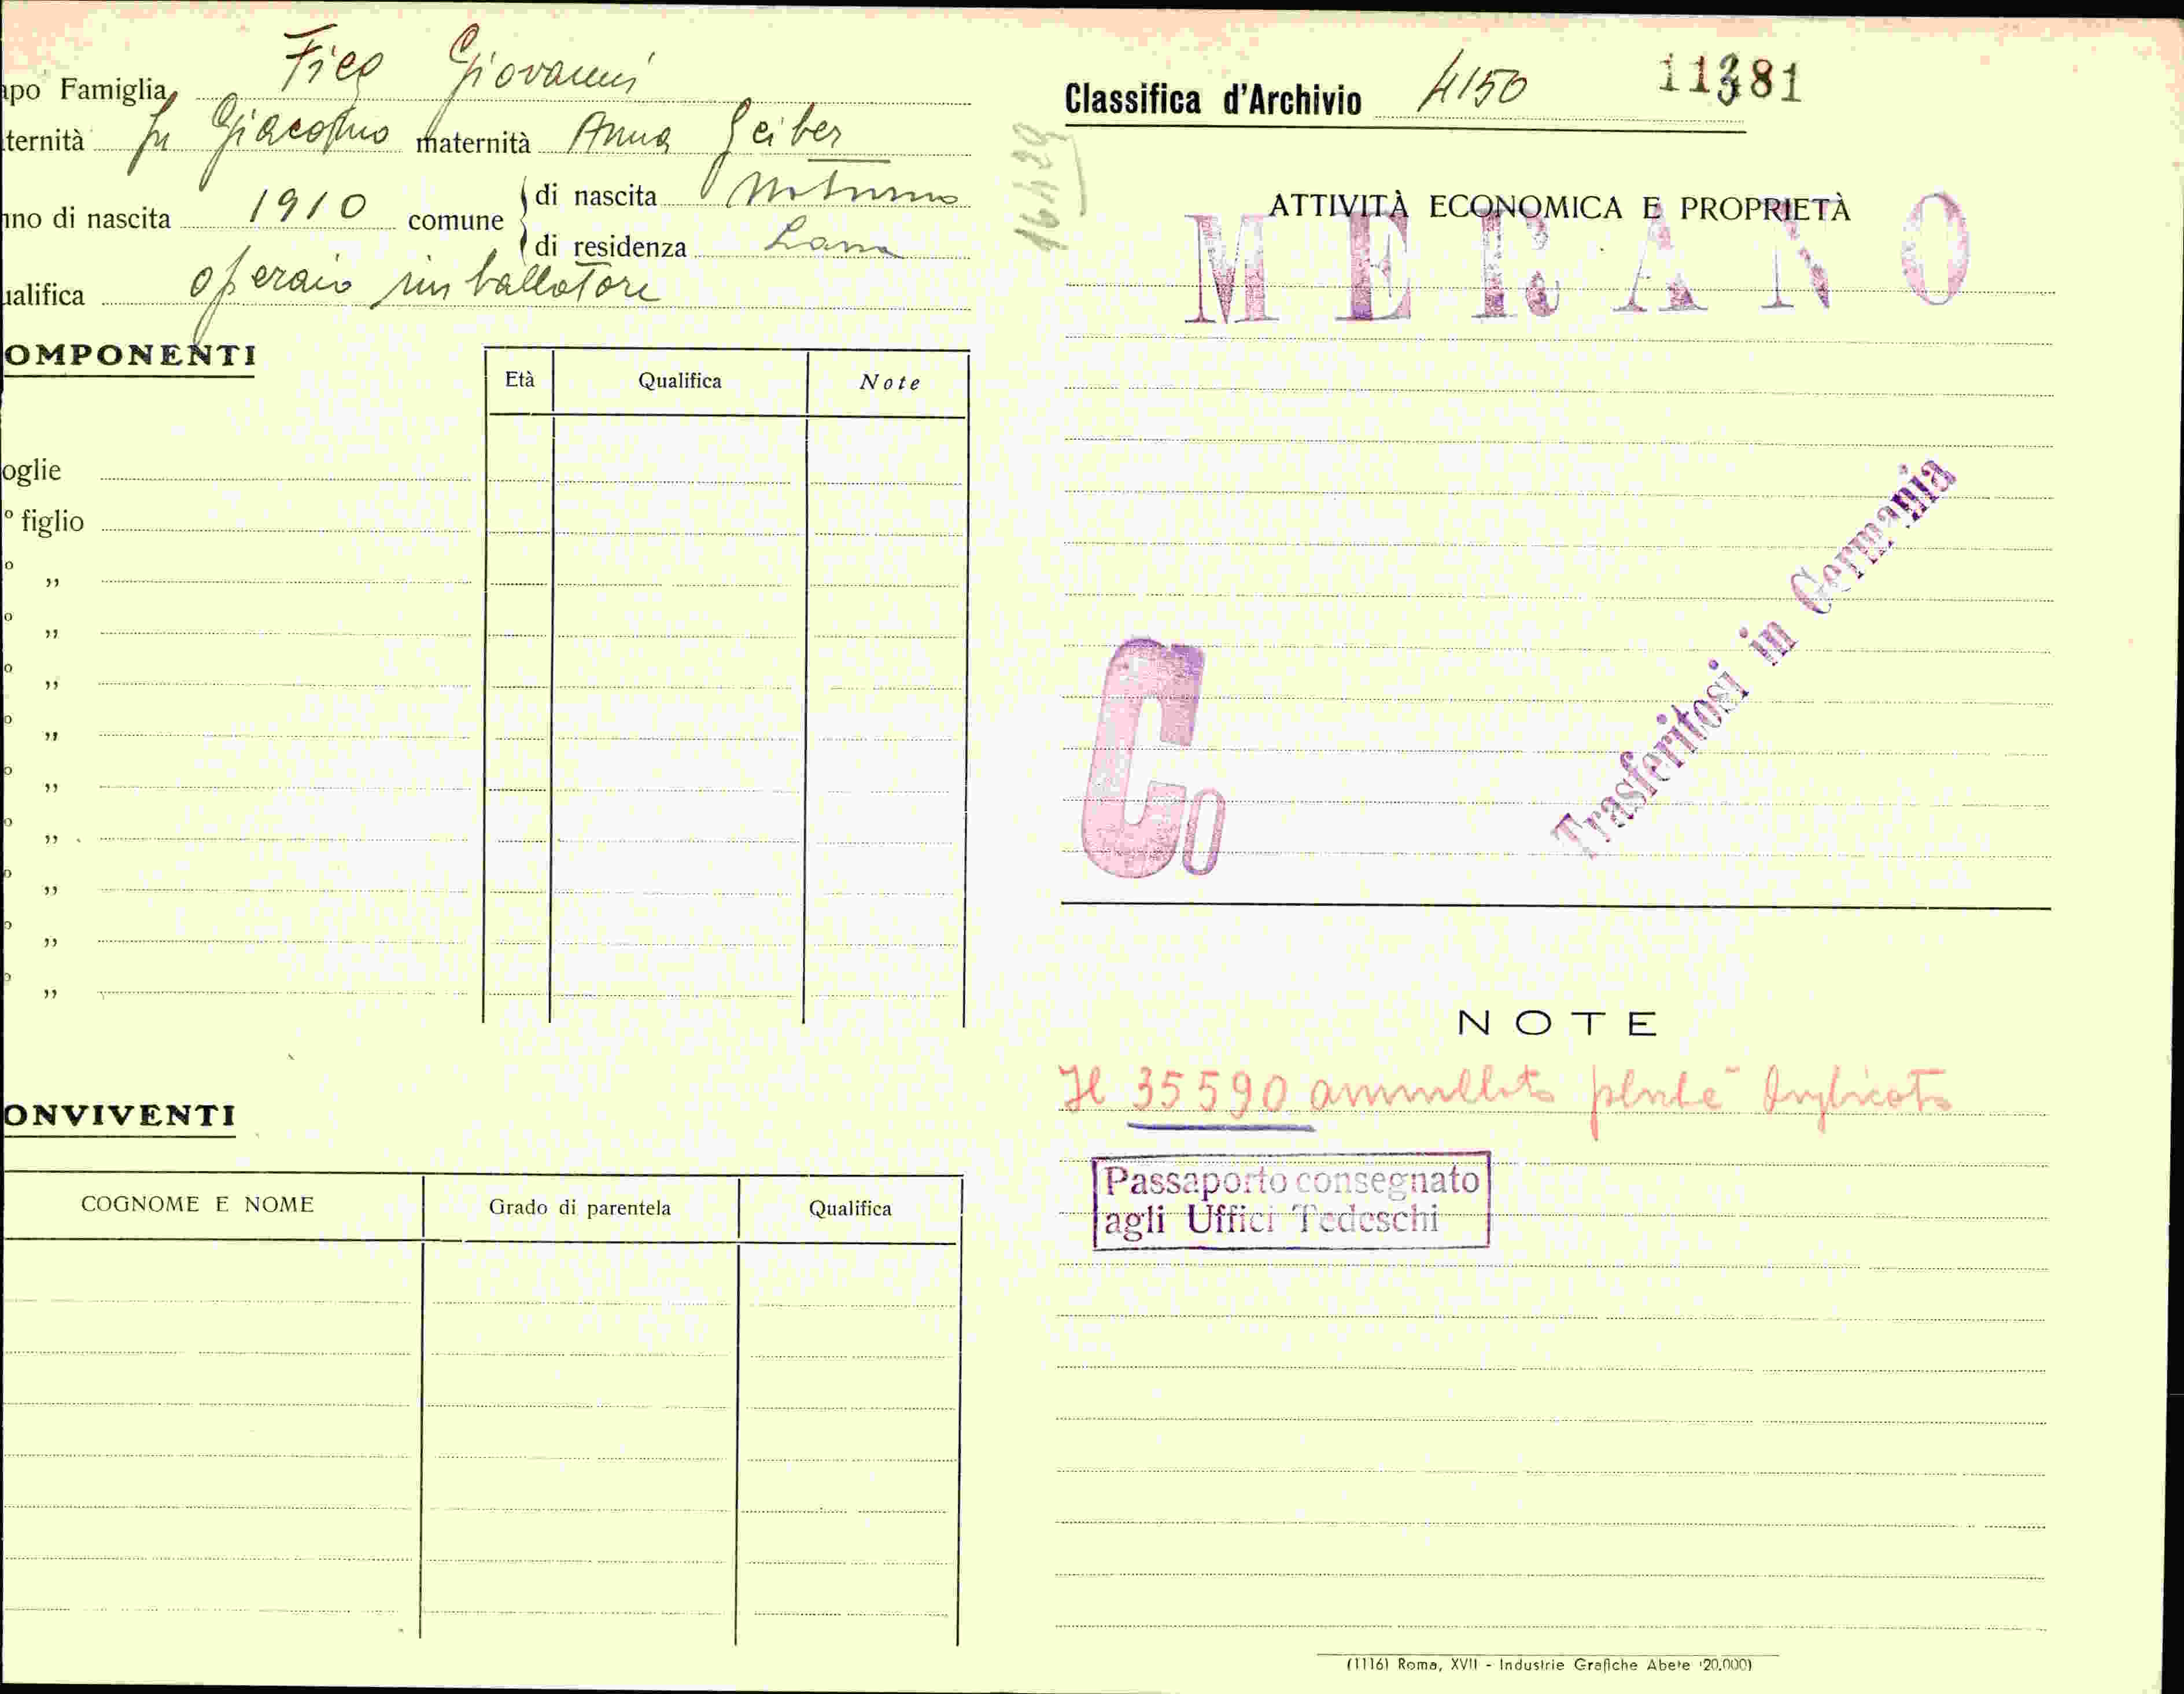 apo Famiglia Fieg Giovanni
ternità fu Giacomo maternità Anna Geiber
nno di nascita 1910 comune di nascita Naturno
di residenza Lana
ualifica operaio imballatore
OMPONENTI
Età Qualifica Note
oglie
° figlio
° „
° „
° „
° „
° „
° „
° „
° „
° „
ONVIVENTI
COGNOME E NOME Grado di parentela Qualifica
Classifica d'Archivio 4150 11381
ATTIVITÀ ECONOMICA E PROPRIETÀ
MERANO
Trasferitosi in Germania
Co
NOTE
Il 35590 annullato duplicato
Passaporto consegnato
agli Uffici Tedeschi
(1116) Roma, XVII - Industrie Grafiche Abete (20.000)